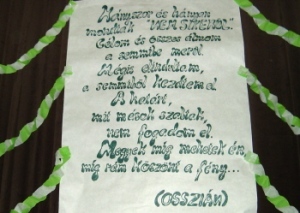 Hányszor és hányan
mondták "NEM SIKERÜL".
Célom és összes álmom
a semmibe merül.
Mégis elindultam,
a semmiből kezdtem el
A határt,
mit mások szabtak,
nem fogadom el.
Megyek míg mehetek én,
míg rám köszönt a fény...
(OSSZIÁN)